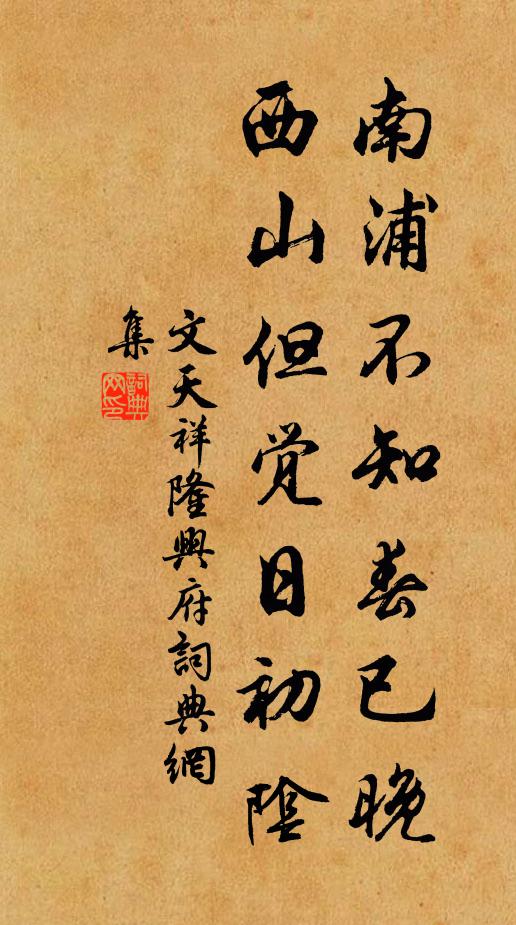 南浦不知春已晚
西山但觉日初陰
文天祥隆興府詞典網
集
詞典
网印